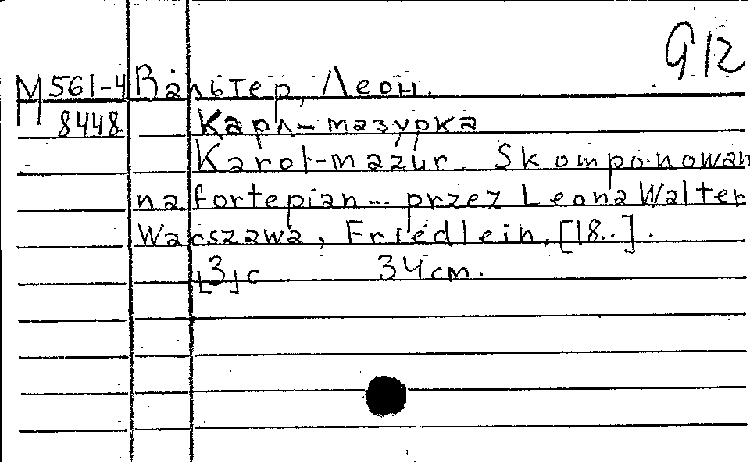 912
М 561-4 Вальтер, Леон.
8448 Карл-мазурка
Karol-mazur. Skomponowan
na fortepian... przez Leona Walter
Warszawa, Friedlein, [18..].
[3]c 34 cm.